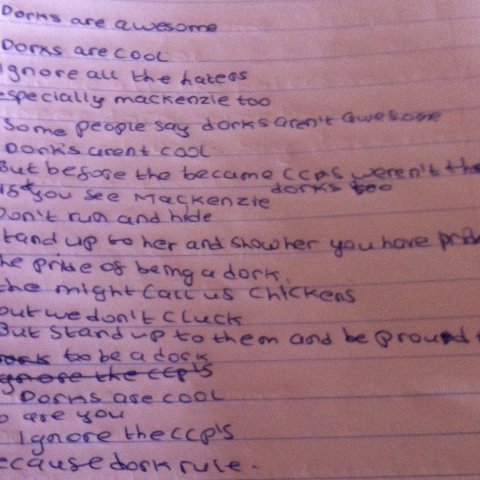 Dorks are awesome
Dorks are cool
Ignore all the haters
especially mackenzie too
Some people say dorks aren't awesome
Dorks arent cool
But before the became CCPS weren't the
dorks too
If you see Mackenzie
Don't run and hide
Stand up to her and show her you have pride
the pride of being a dork.
the might call us chickens
but we don't cluck
But stand up to them and be proud
to be a dork
Ignore the CCP'S
Dorks are cool
so are you
Ignore the CCP's
because dork rule.